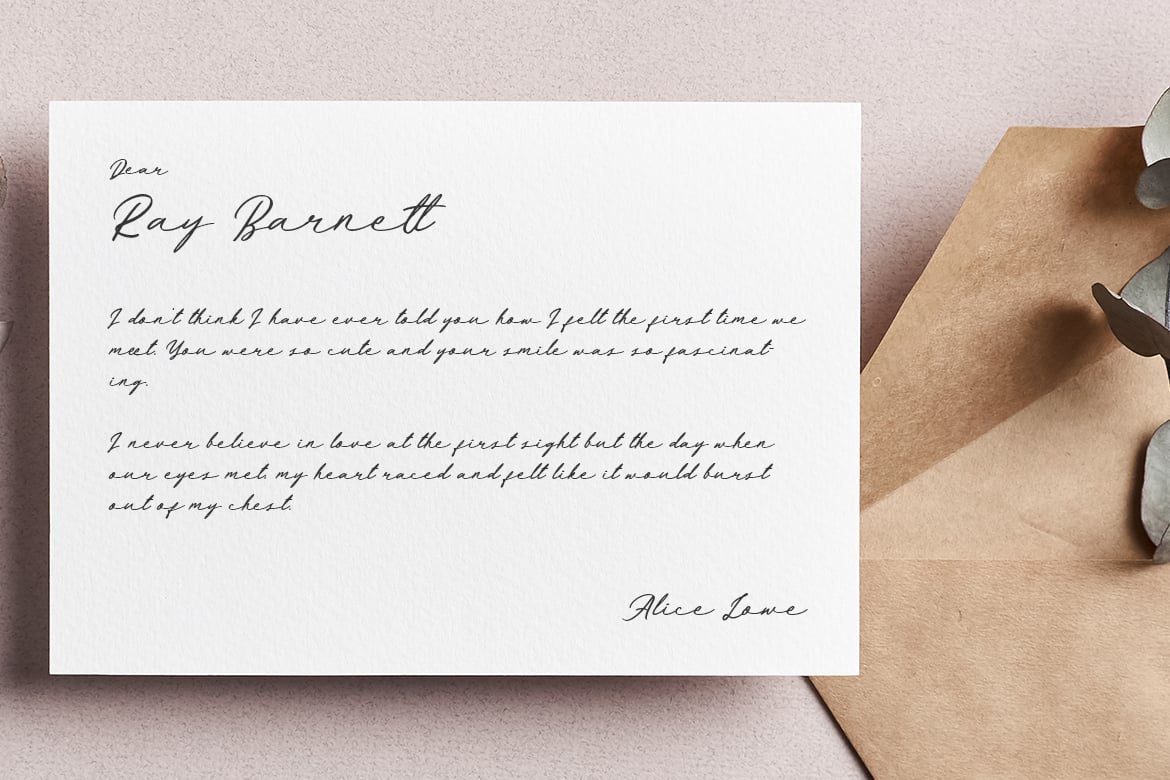 Dear
Ray Barnett
I don't think I have ever told you how I felt the first time we
meet. You were so cute and your smile was so fascinat-
ing.
I never believe in love at the first sight but the day when
our eyes met, my heart raced and felt like it would burst
out of my chest.
Alice Lowe